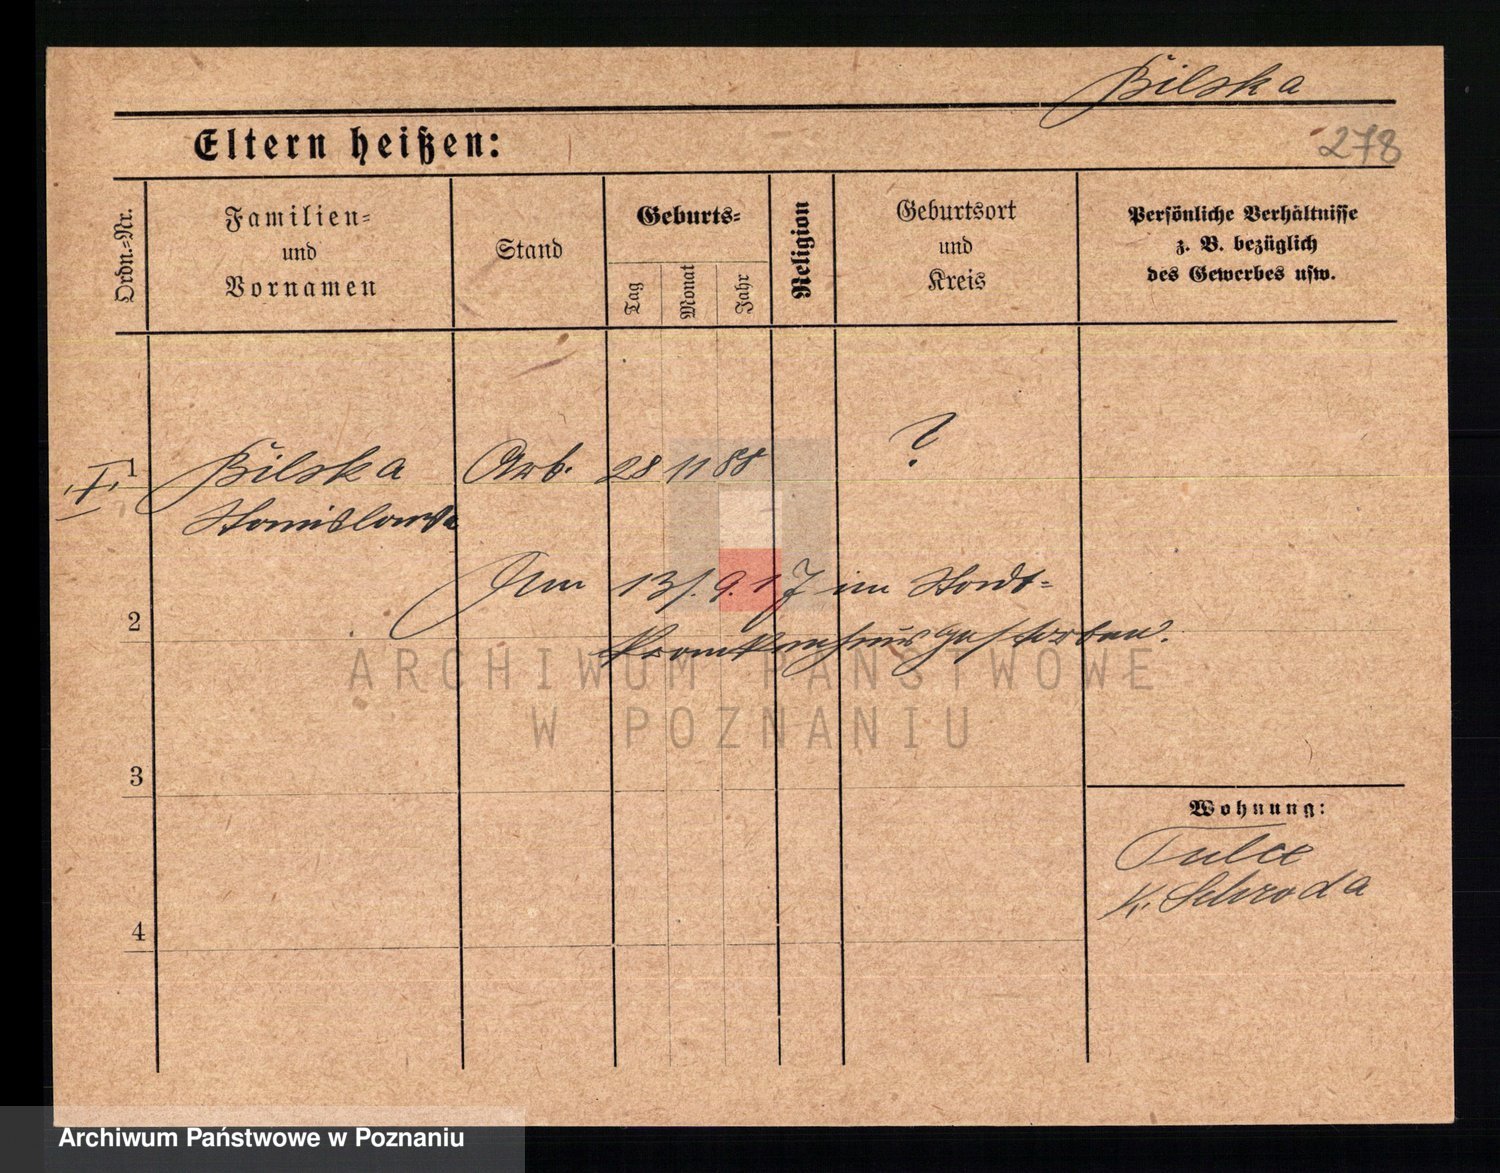 Bilska
Eltern heißen:
278
Ordn.-Nr.
Familien-
und
Vornamen
Stand
Geburts-
Tag
Monat
Jahr
Religion
Geburtsort
und
Kreis
Persönliche Verhältnisse
z. B. bezüglich
des Gewerbes usw.
I 1 Bilska Arb. 28 11 88 ?
Stanislawa
Am 13/.9.17 im Stadt-
2
krankenhaus gestorben.
ARCHIWUM PAŃSTWOWE
W POZNANIU
3
Wohnung:
Tulce
K. Schroda
4
Archiwum Państwowe w Poznaniu